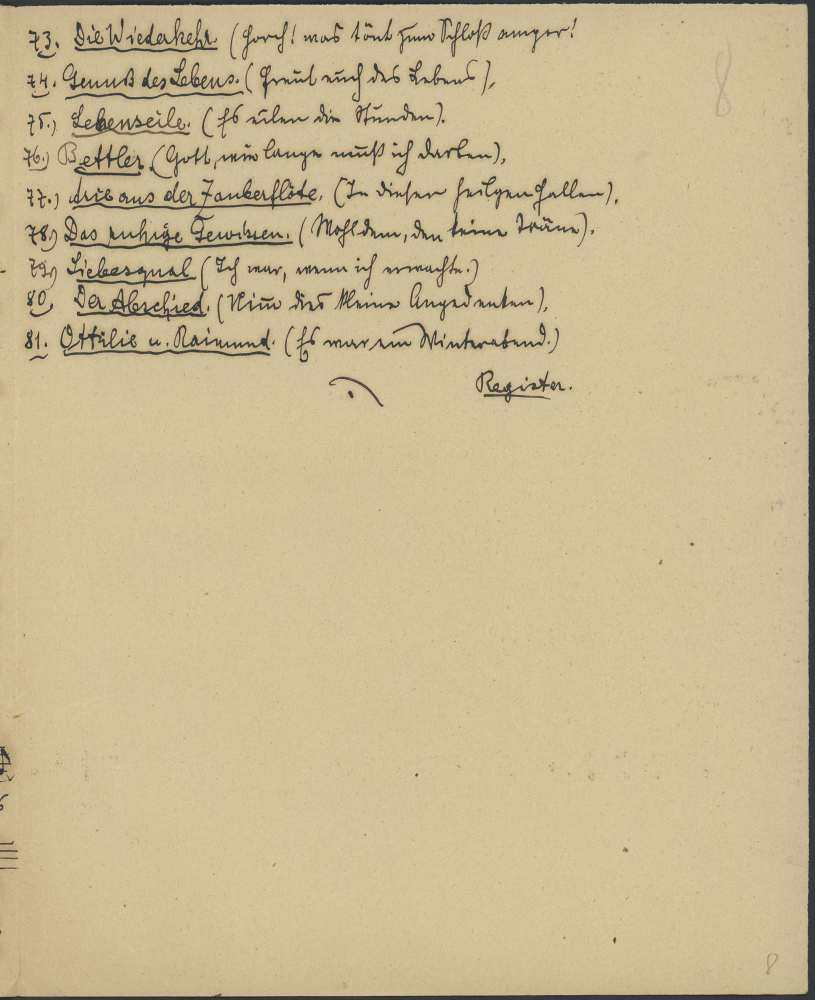 73. Die Wiederkehr. (Horch! was tönt zum Schloß empor!
74. Genuß des Lebens. (Freut euch des Lebens),
75.) Lebenseile. (Es eilen die Stunden).
76.) Bettler. (Gott, wie lange muß ich darben),
77.) Arie aus der Zauberflöte. (In diesen heilgen Hallen),
78.) Das ruhige Gewissen. (Wohl dem, den keine Träne).
79.) Liebesqual (Ich war, wenn ich erwachte.)
80. Der Abschied. (Nim̅ dies kleine Angedenken),
81. Ottilie u. Raimund. (Es war ein Winterabend.)
Register.
8
8